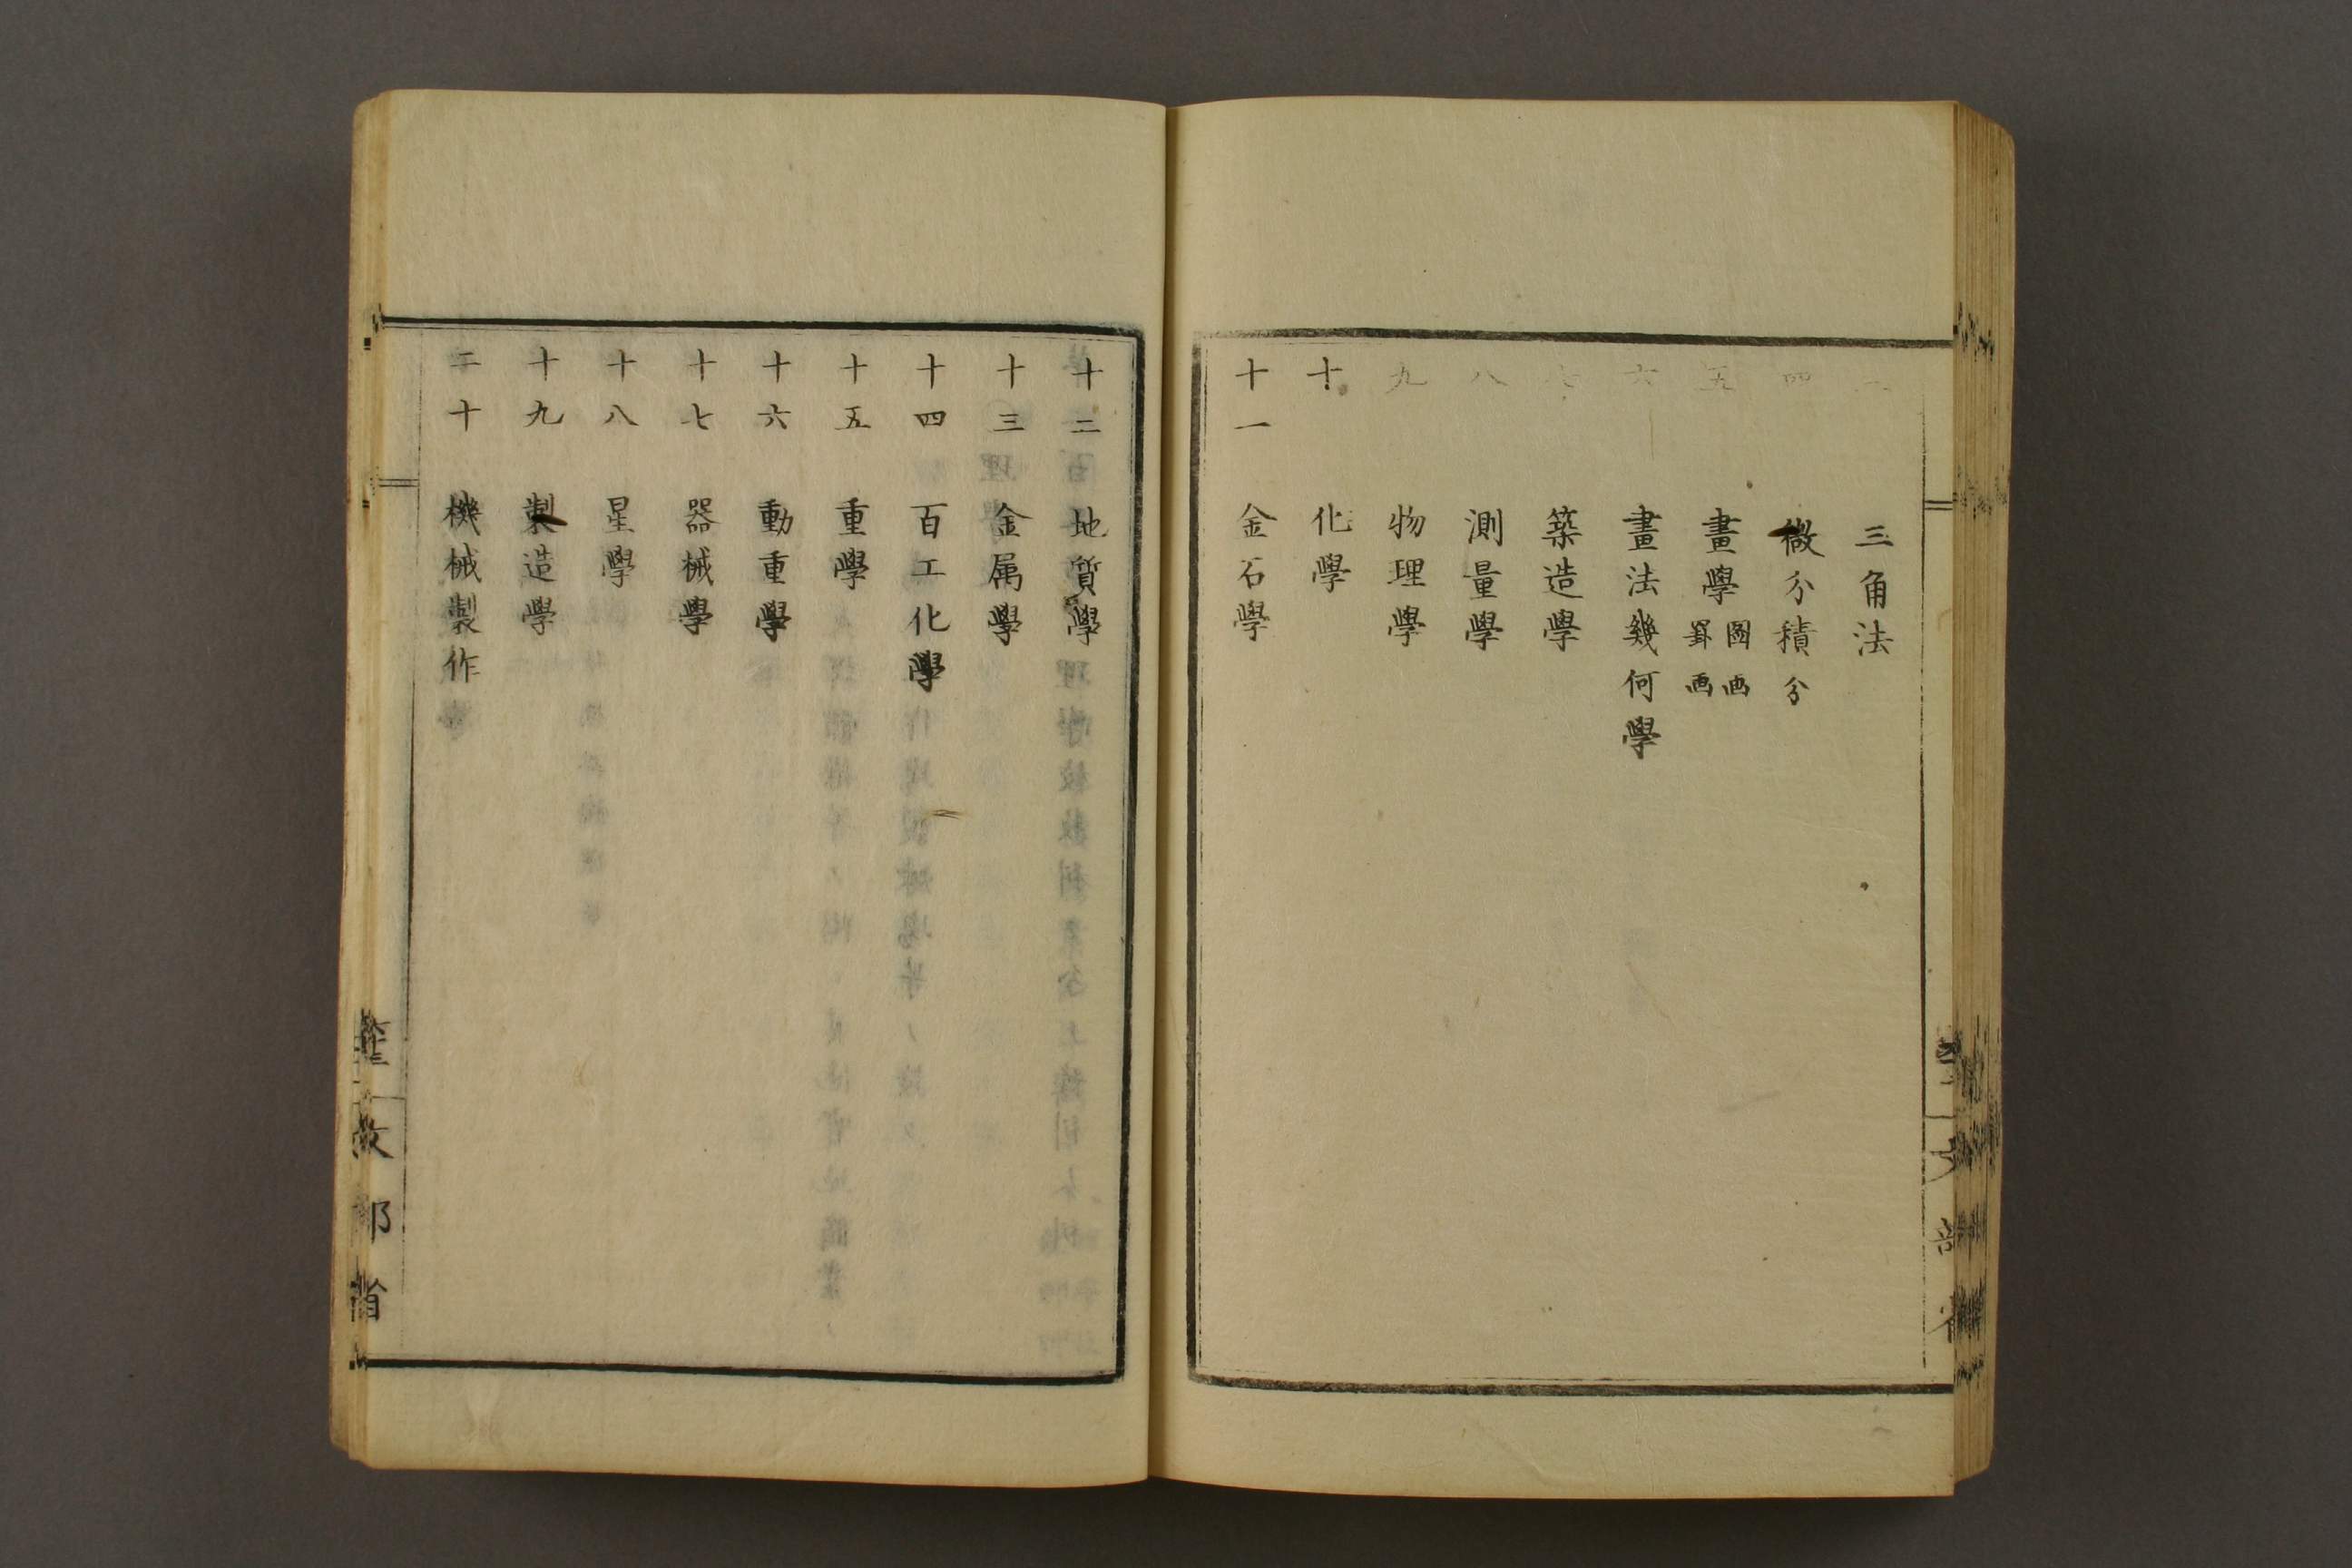 三角法
四 微分積分
五 畫學 圖画 罫画
六 畫法幾何學
七 築造學
八 測量學
九 物理學
十 化學
十一 金石學
十二 地質學
十三 金属學
十四 百工化學
十五 重學
十六 動重學
十七 器械學
十八 星學
十九 製造學
二十 機械製作
文部省